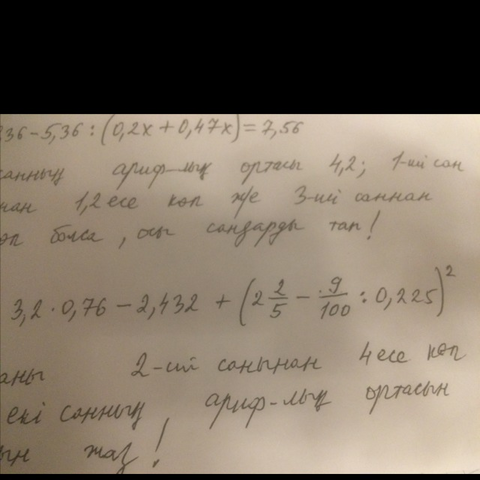 ,36 - 5,36 : (0,2x + 0,47x) = 7,56
санның ариф-лық ортасы 4,2; 1-ий сан
нан 1,2 есе көп же 3-ий саннан
өп болса, осы сандарды тап!
3,2 · 0,76 - 2,432 + (2 2/5 - 9/100 : 0,225)²
аны 2-ий санынан 4 есе көп
екі санның ариф-лық ортасын
ын жаз!